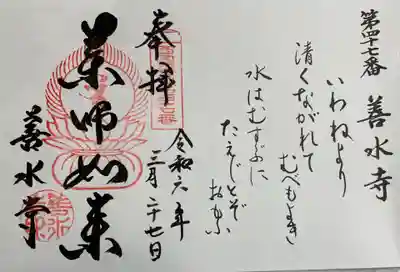 第四十七番 善水寺
いわねより
清くながれて
むべもよき
水はむすぶに
たえじとぞ
おもふ
令和六年
三月二十七日
奉拝
薬師如来
善水